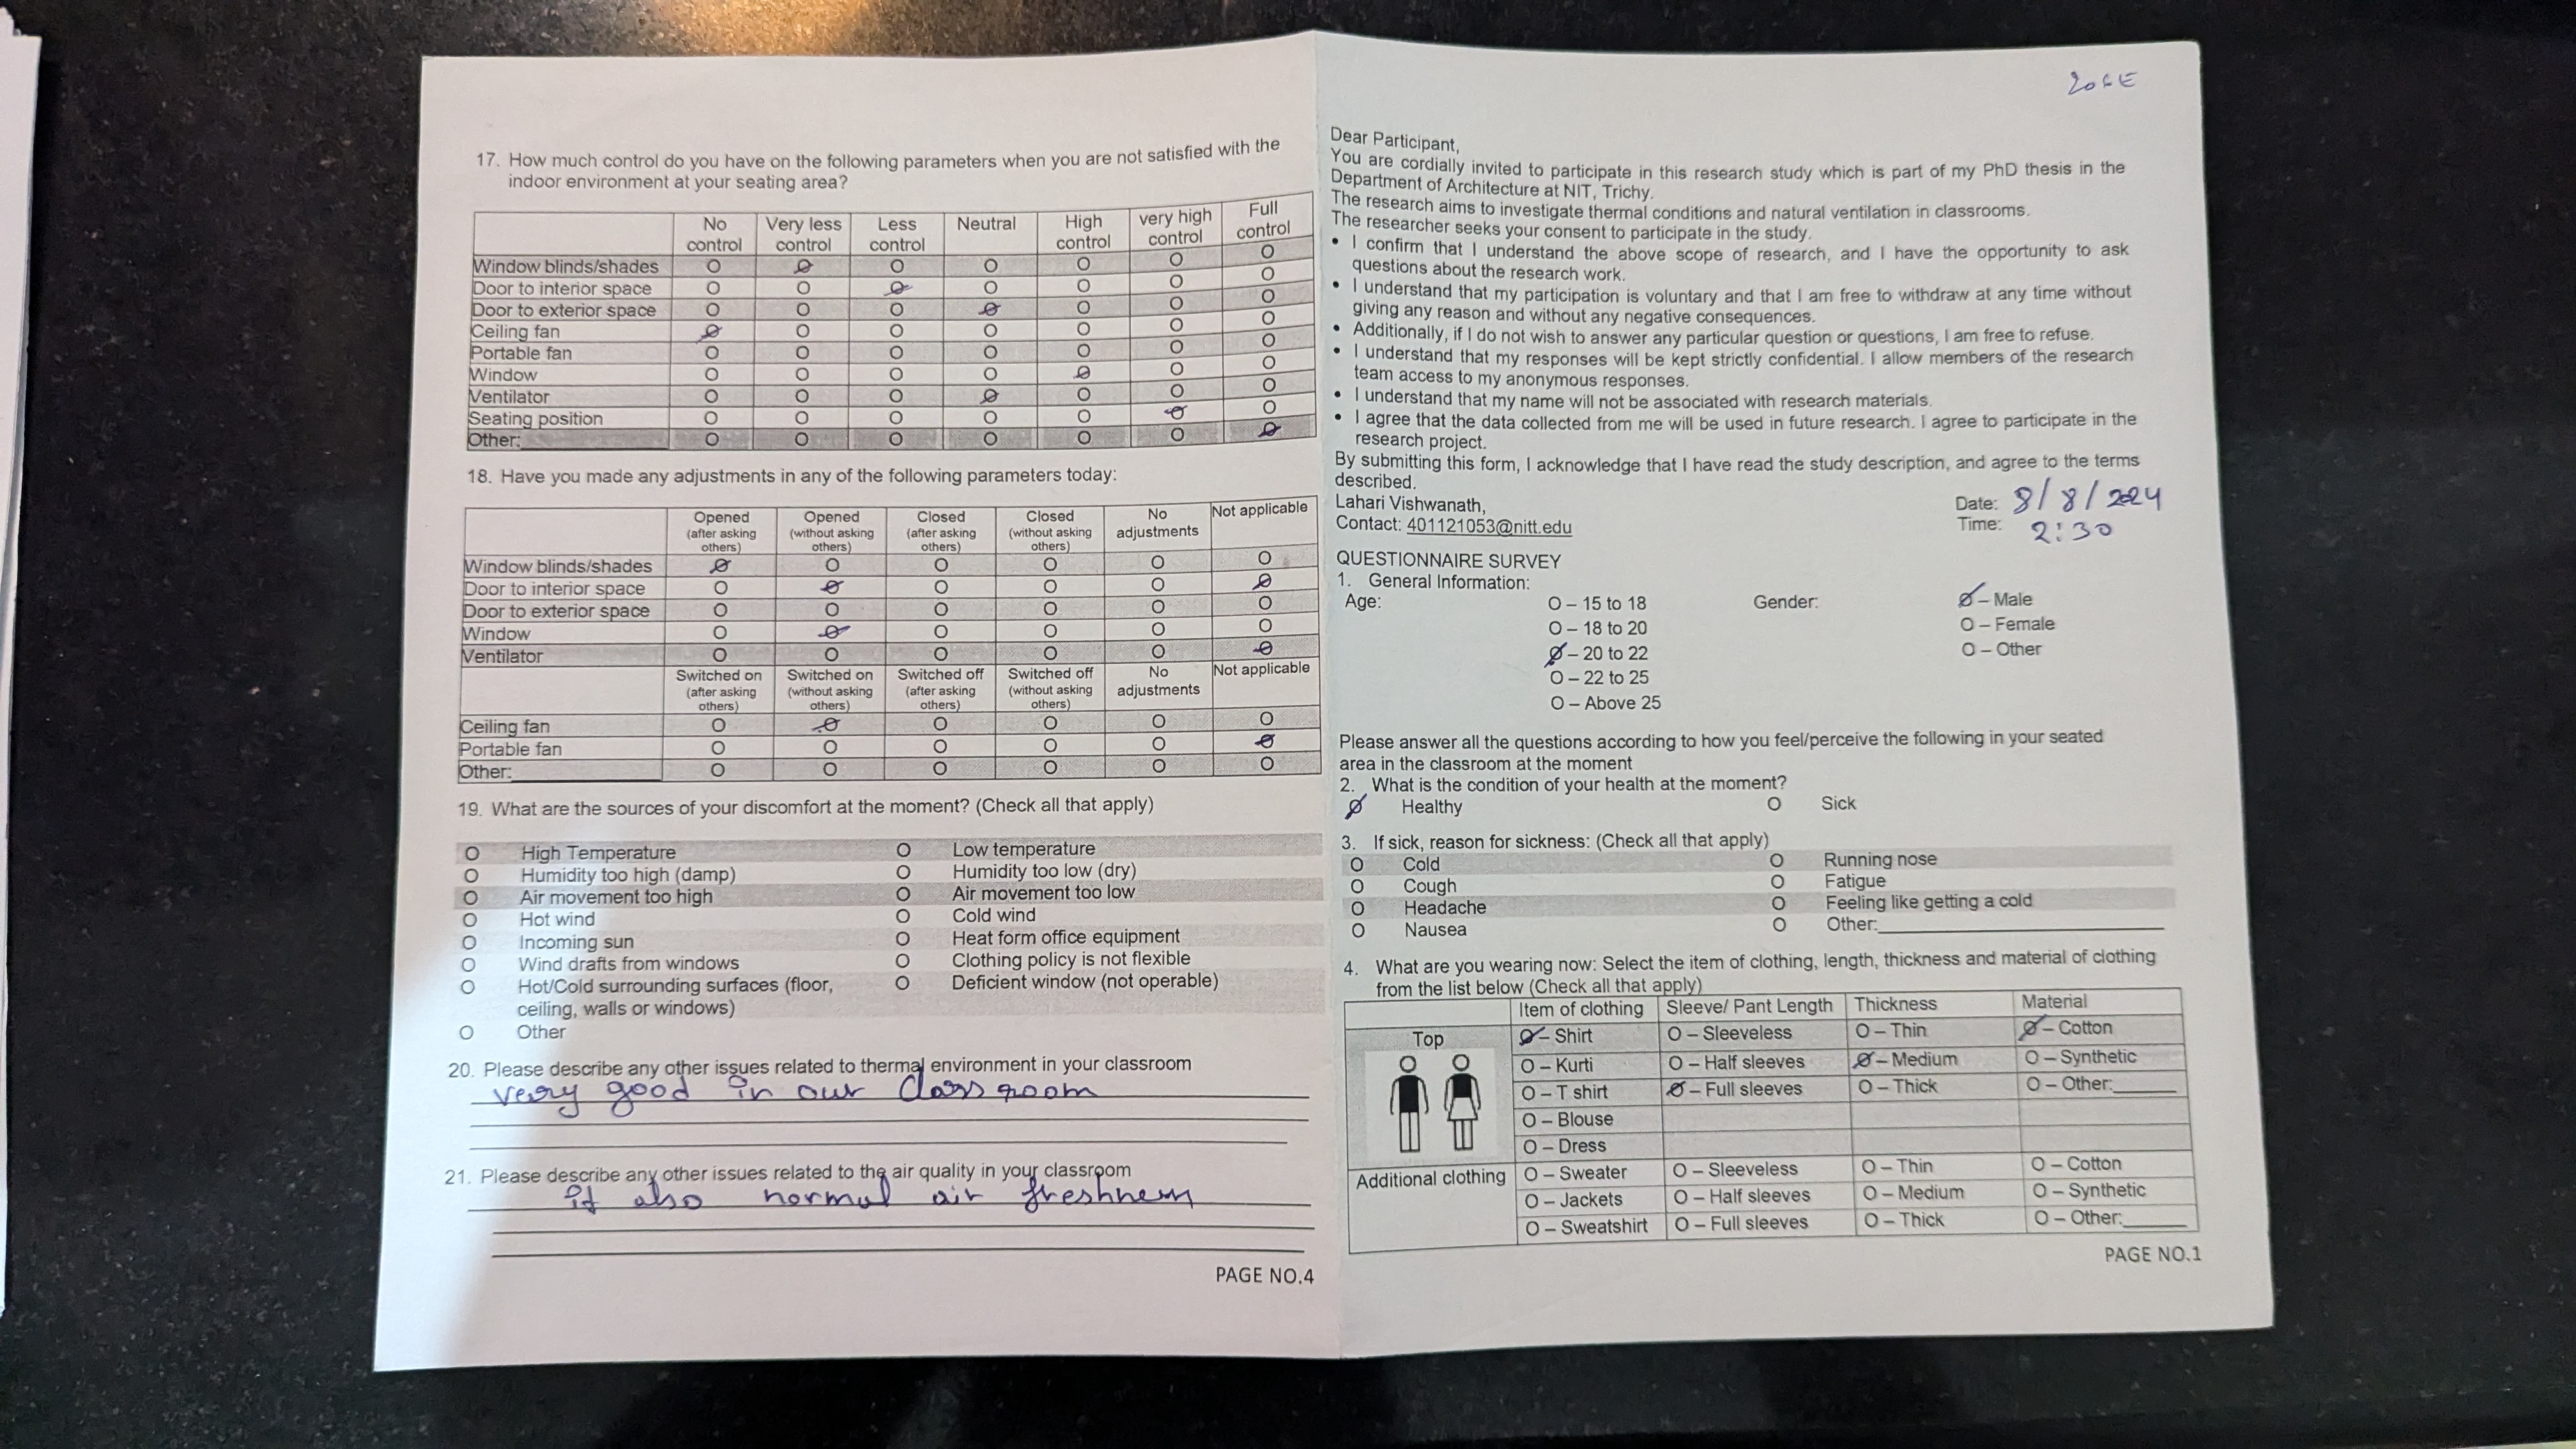 17. How much control do you have on the following parameters when you are not satisfied with the
indoor environment at your seating area?
No control Very less control Less control Neutral High control very high control Full control
Window blinds/shades O O O O O O O
Door to interior space O O O O O O O
Door to exterior space O O O O O O O
Ceiling fan O O O O O O O
Portable fan O O O O O O O
Window O O O O O O O
Ventilator O O O O O O O
Seating position O O O O O O O
Other:_______ O O O O O O O
18. Have you made any adjustments in any of the following parameters today:
Opened (after asking others) Opened (without asking others) Closed (after asking others) Closed (without asking others) No adjustments Not applicable
Window blinds/shades O O O O O O
Door to interior space O O O O O O
Door to exterior space O O O O O O
Window O O O O O O
Ventilator O O O O O O
Switched on (after asking others) Switched on (without asking others) Switched off (after asking others) Switched off (without asking others) No adjustments Not applicable
Ceiling fan O O O O O O
Portable fan O O O O O O
Other:_______ O O O O O O
19. What are the sources of your discomfort at the moment? (Check all that apply)
O High Temperature O Low temperature
O Humidity too high (damp) O Humidity too low (dry)
O Air movement too high O Air movement too low
O Hot wind O Cold wind
O Incoming sun O Heat form office equipment
O Wind drafts from windows O Clothing policy is not flexible
O Hot/Cold surrounding surfaces (floor, O Deficient window (not operable)
ceiling, walls or windows)
O Other
20. Please describe any other issues related to thermal environment in your classroom
very good in our Class room
21. Please describe any other issues related to the air quality in your classroom
it also normal air freshness
PAGE NO.4
Dear Participant,
You are cordially invited to participate in this research study which is part of my PhD thesis in the
Department of Architecture at NIT, Trichy.
The research aims to investigate thermal conditions and natural ventilation in classrooms.
The researcher seeks your consent to participate in the study.
• I confirm that I understand the above scope of research, and I have the opportunity to ask
questions about the research work.
• I understand that my participation is voluntary and that I am free to withdraw at any time without
giving any reason and without any negative consequences.
• Additionally, if I do not wish to answer any particular question or questions, I am free to refuse.
• I understand that my responses will be kept strictly confidential. I allow members of the research
team access to my anonymous responses.
• I understand that my name will not be associated with research materials.
• I agree that the data collected from me will be used in future research. I agree to participate in the
research project.
By submitting this form, I acknowledge that I have read the study description, and agree to the terms
described.
Lahari Vishwanath, Date: 8/8/2024
Contact: 401121053@nitt.edu Time: 2:30
QUESTIONNAIRE SURVEY
1. General Information:
Age: O – 15 to 18 Gender: O – Male
O – 18 to 20 O – Female
O – 20 to 22 O – Other
O – 22 to 25
O – Above 25
Please answer all the questions according to how you feel/perceive the following in your seated
area in the classroom at the moment
2. What is the condition of your health at the moment?
O Healthy O Sick
3. If sick, reason for sickness: (Check all that apply)
O Cold O Running nose
O Cough O Fatigue
O Headache O Feeling like getting a cold
O Nausea O Other:_______
4. What are you wearing now: Select the item of clothing, length, thickness and material of clothing
from the list below (Check all that apply)
Item of clothing Sleeve/ Pant Length Thickness Material
Top O – Shirt O – Sleeveless O – Thin O – Cotton
O – Kurti O – Half sleeves O – Medium O – Synthetic
O – T shirt O – Full sleeves O – Thick O – Other:_______
O – Blouse
O – Dress
Additional clothing O – Sweater O – Sleeveless O – Thin O – Cotton
O – Jackets O – Half sleeves O – Medium O – Synthetic
O – Sweatshirt O – Full sleeves O – Thick O – Other:_______
PAGE NO.1